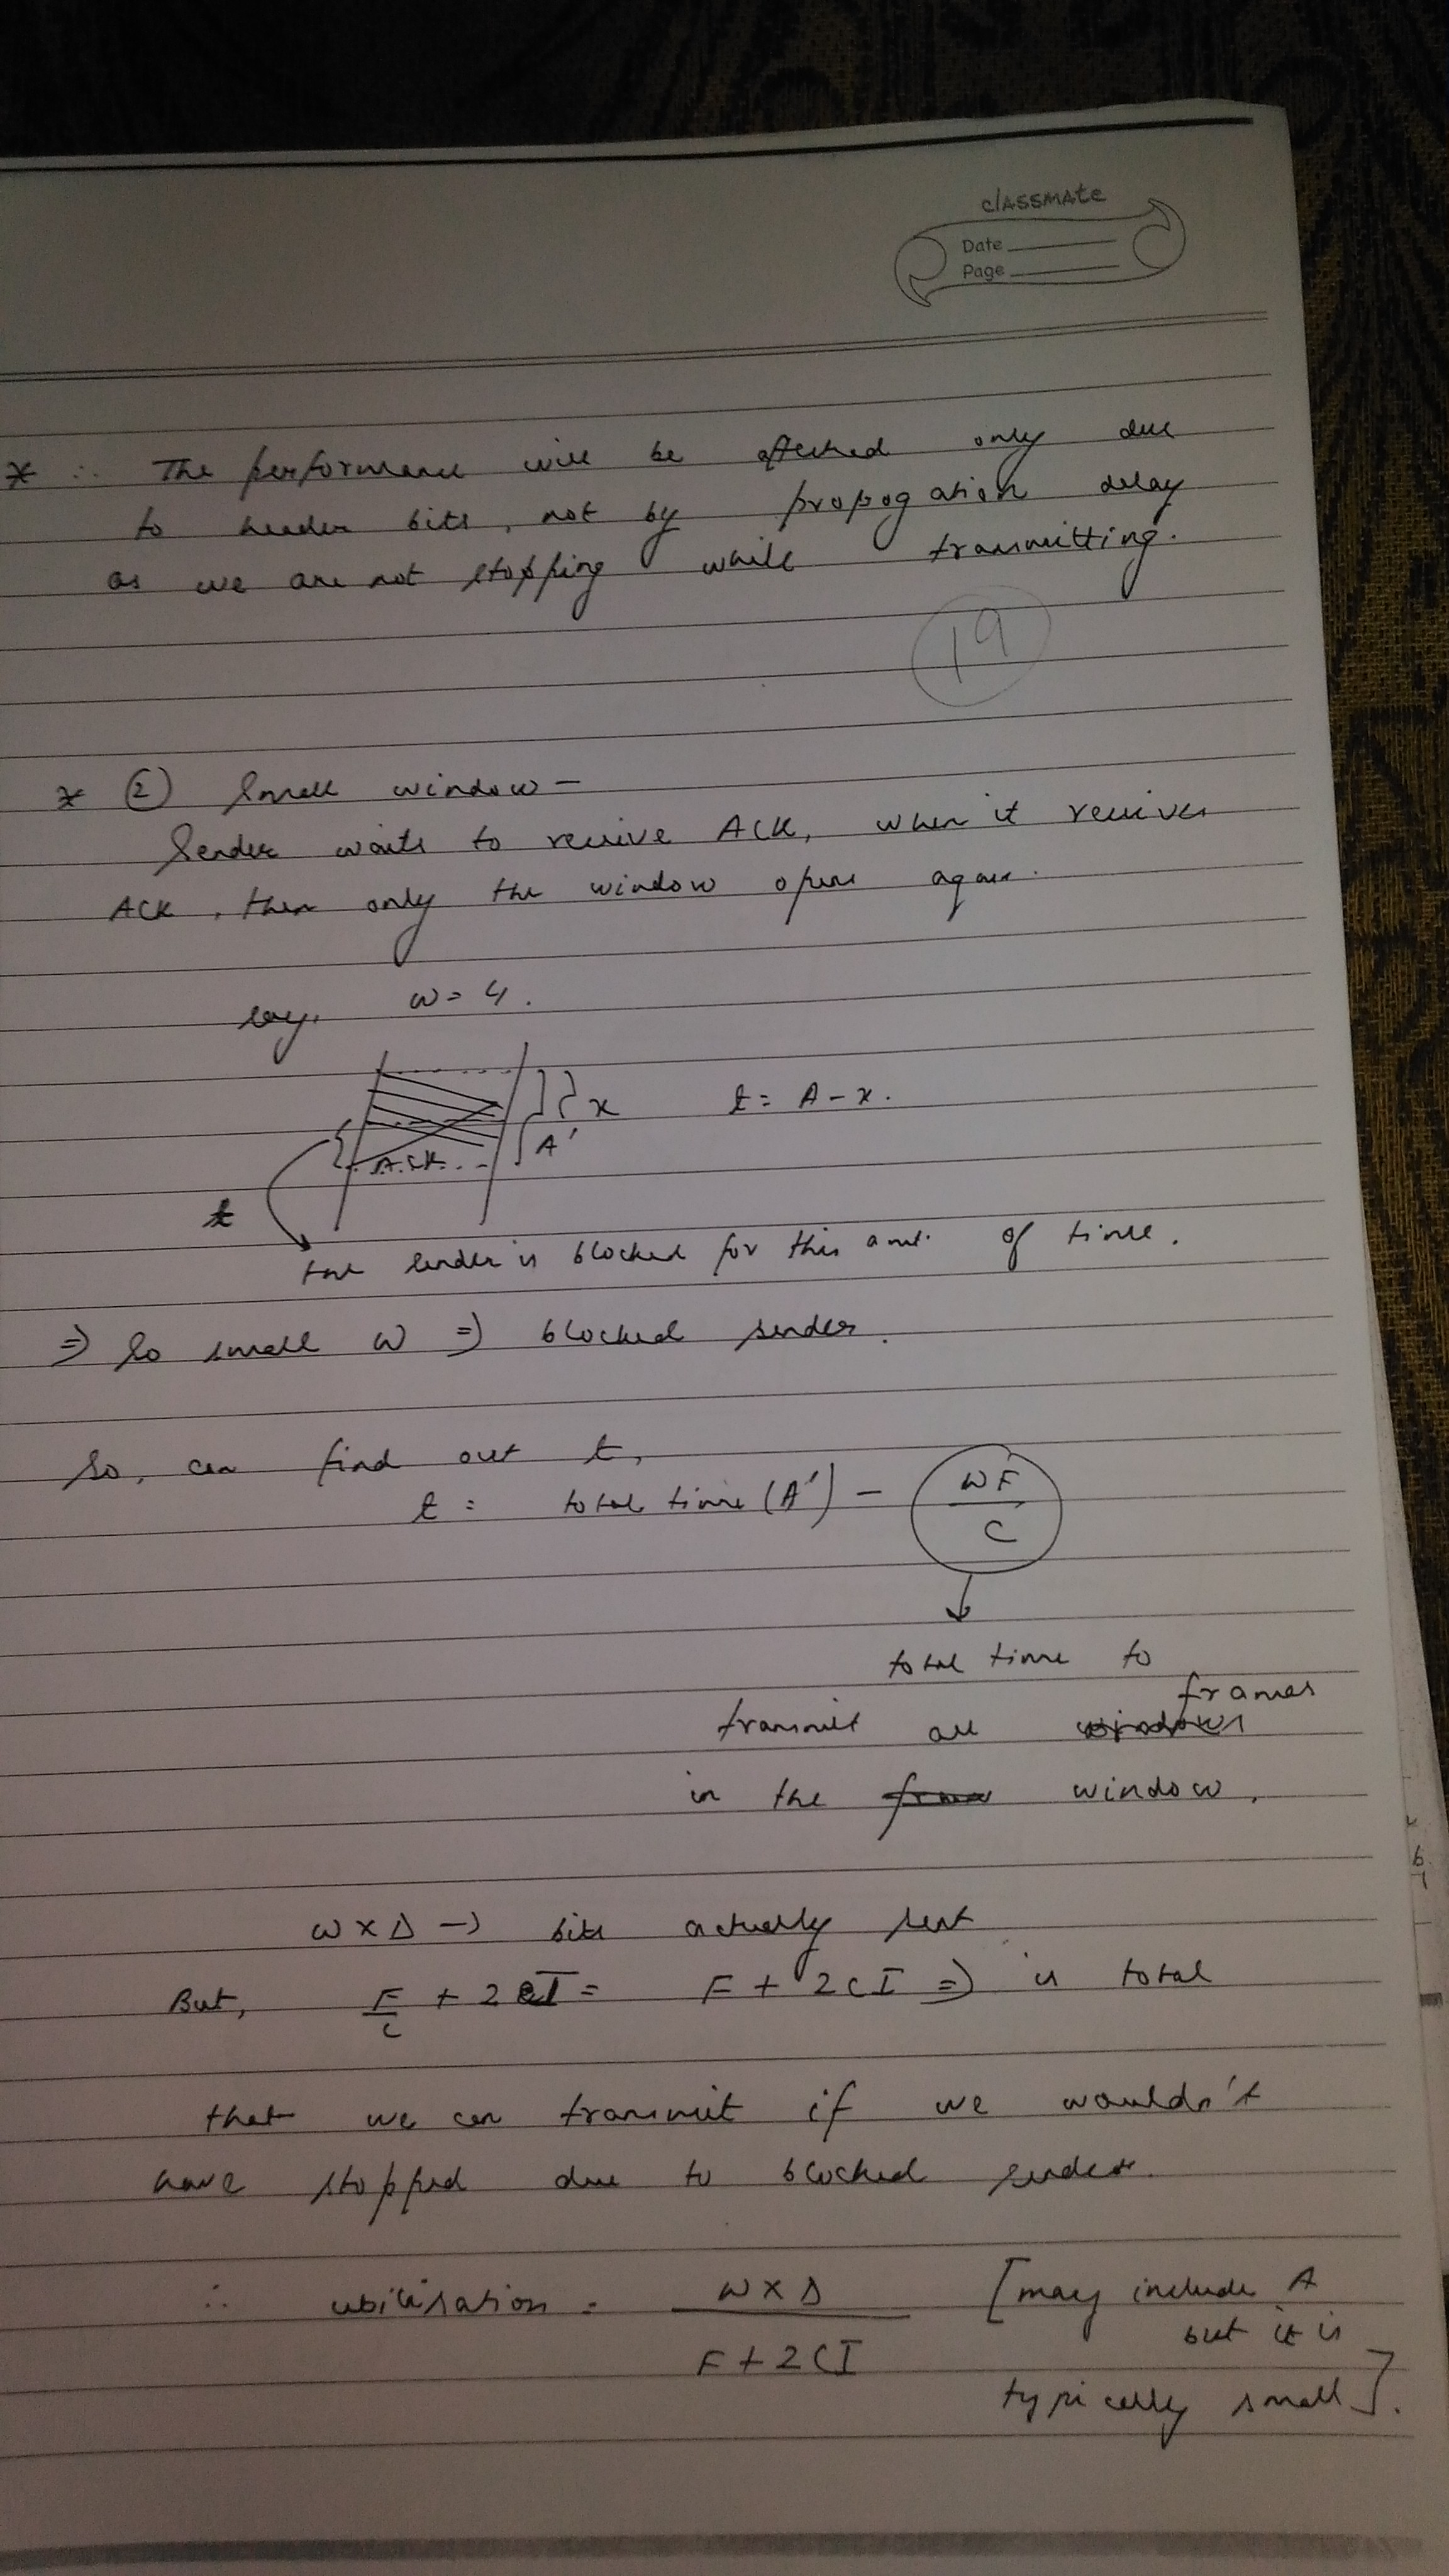 classmate
Date
Page
* ∴ The performance will be affected only due
to header bits, not by propogation delay
as we are not stopping while transmitting.
19
* ② Small window –
Sender waits to receive ACK, when it receives
ACK, then only the window opens again.
say, w = 4.
x t = A - x.
A'
ACK
t
the sender is blocked for this amt. of time.
⇒ So small w ⇒ blocked sender.
So, can find out t,
t = total time (A') - WF/C
total time to
transmit all frames
in the window.
w x D → bits actually sent
But, F/C + 2I = F + 2CI ⇒ is total
that we can transmit if we wouldn't
have stopped due to blocked sender.
∴ utilisation = w x D / F + 2CI [may include A
but it is
typically small].